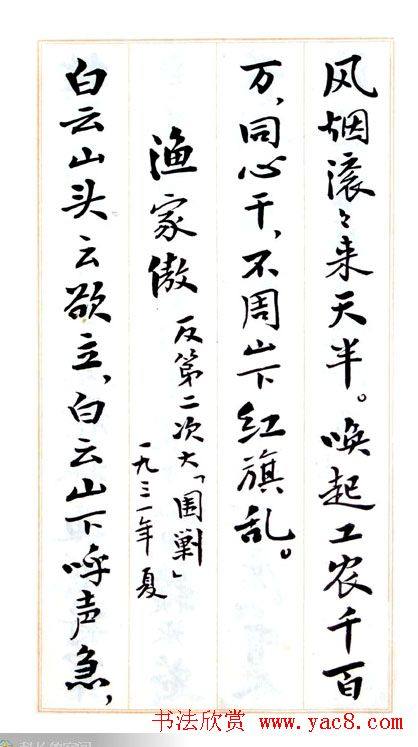 风烟滚々来天半。唤起工农千百
万，同心干，不周山下红旗乱。
渔家傲
反第二次大「围剿」
一九三一年夏
白云山头云欲立，白云山下呼声急，
书法欣赏 www.yac8.com